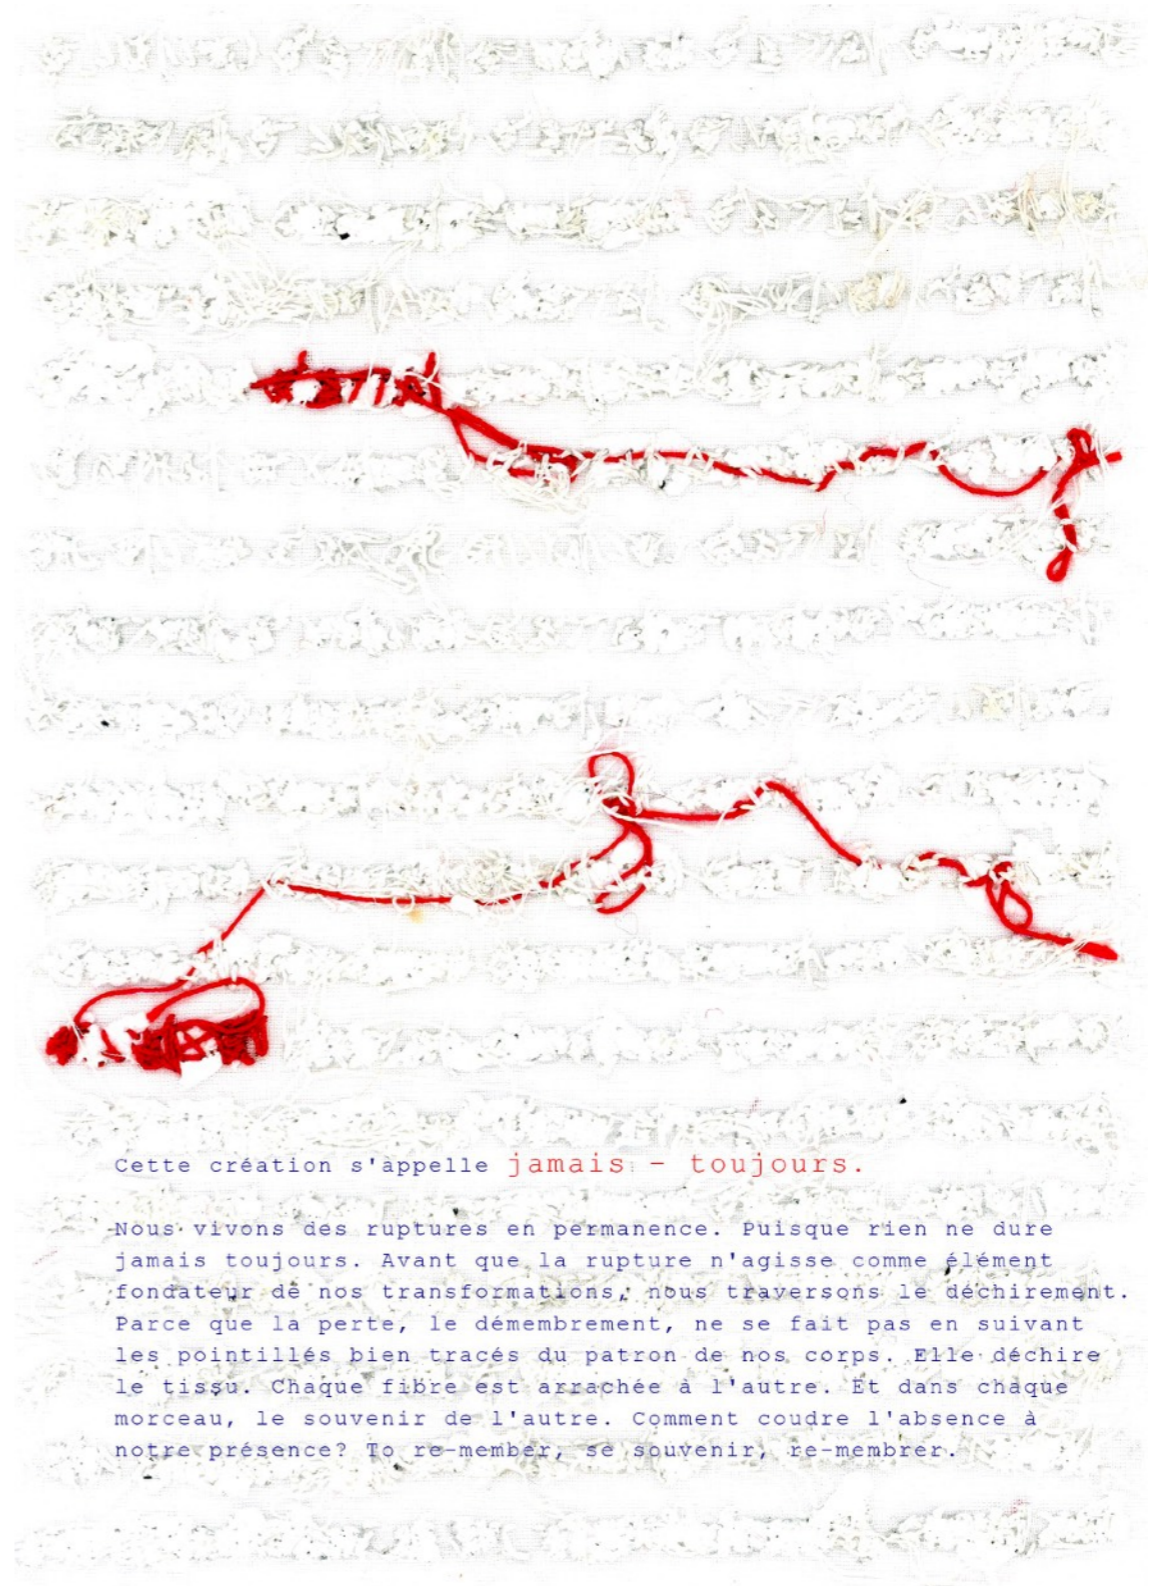 Cette création s'appelle jamais - toujours.
Nous vivons des ruptures en permanence. Puisque rien ne dure
jamais toujours. Avant que la rupture n'agisse comme élément
fondateur de nos transformations, nous traversons le déchirement.
Parce que la perte, le démembrement, ne se fait pas en suivant
les pointillés bien tracés du patron de nos corps. Elle déchire
le tissu. Chaque fibre est arrachée à l'autre. Et dans chaque
morceau, le souvenir de l'autre. Comment coudre l'absence à
notre présence? To re-member, se souvenir, re-membrer.